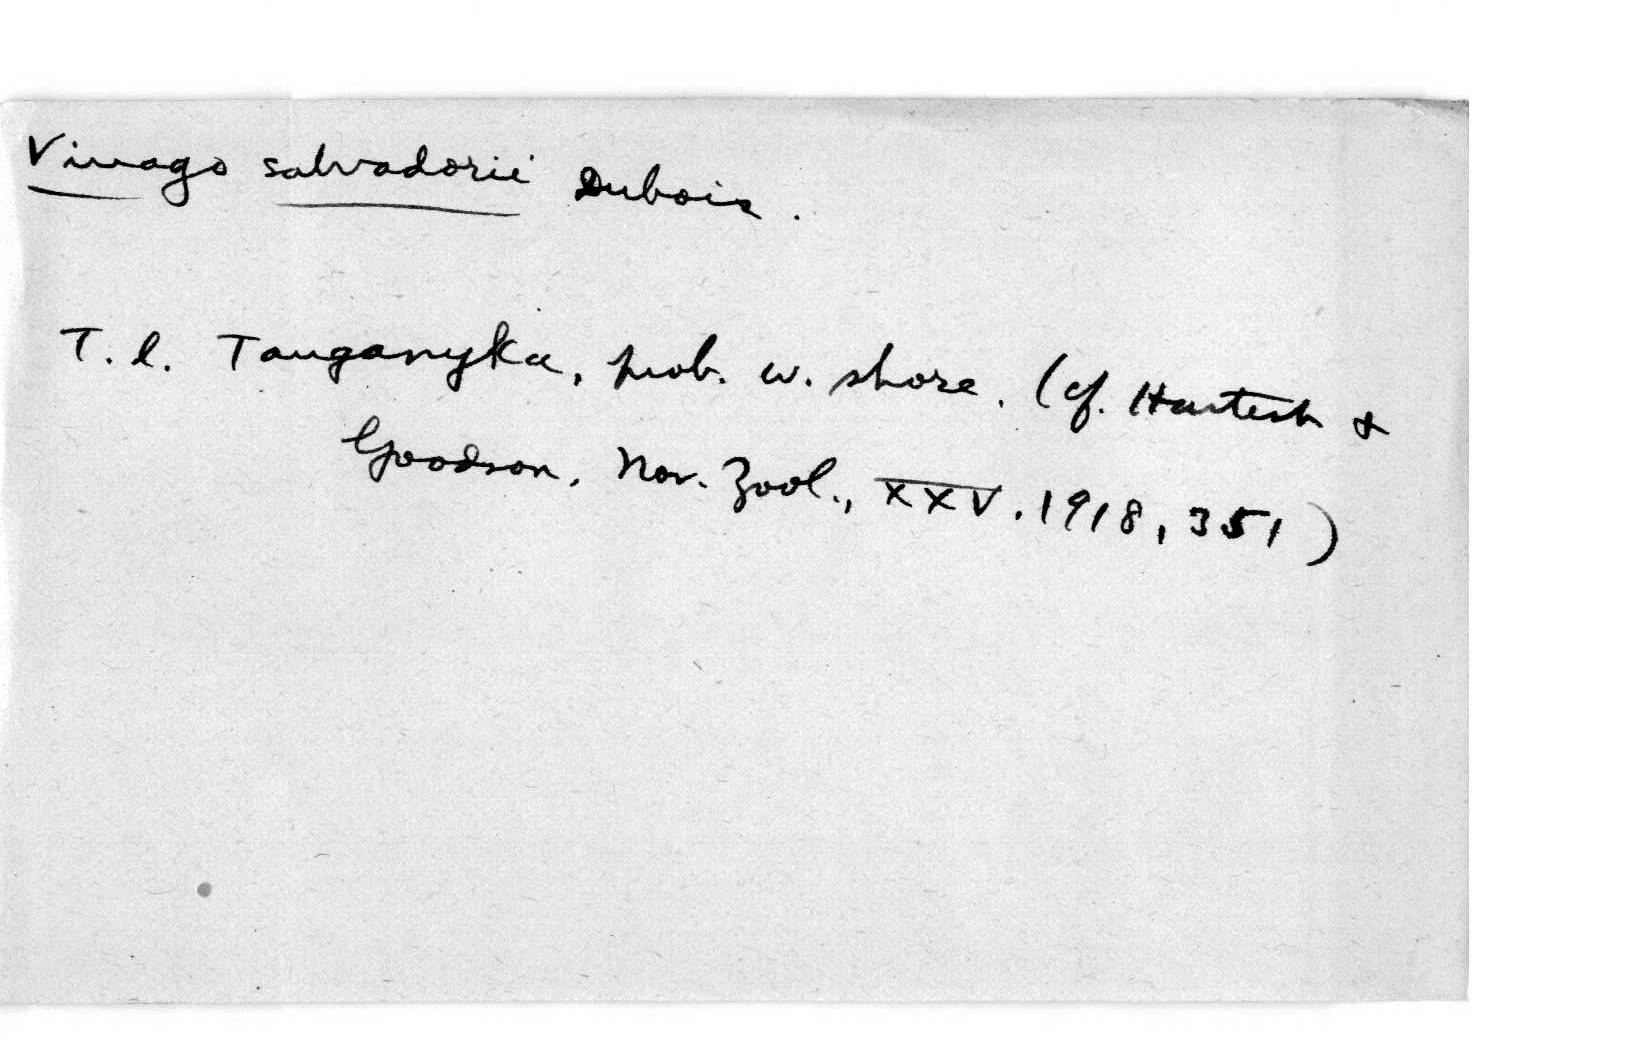 Vinago salvadorii Dubois.
T. l. Tanganyka, prob. w. shore. (cf. Hartert &
Goodson, Nov. Zool., XXV. 1918, 351)